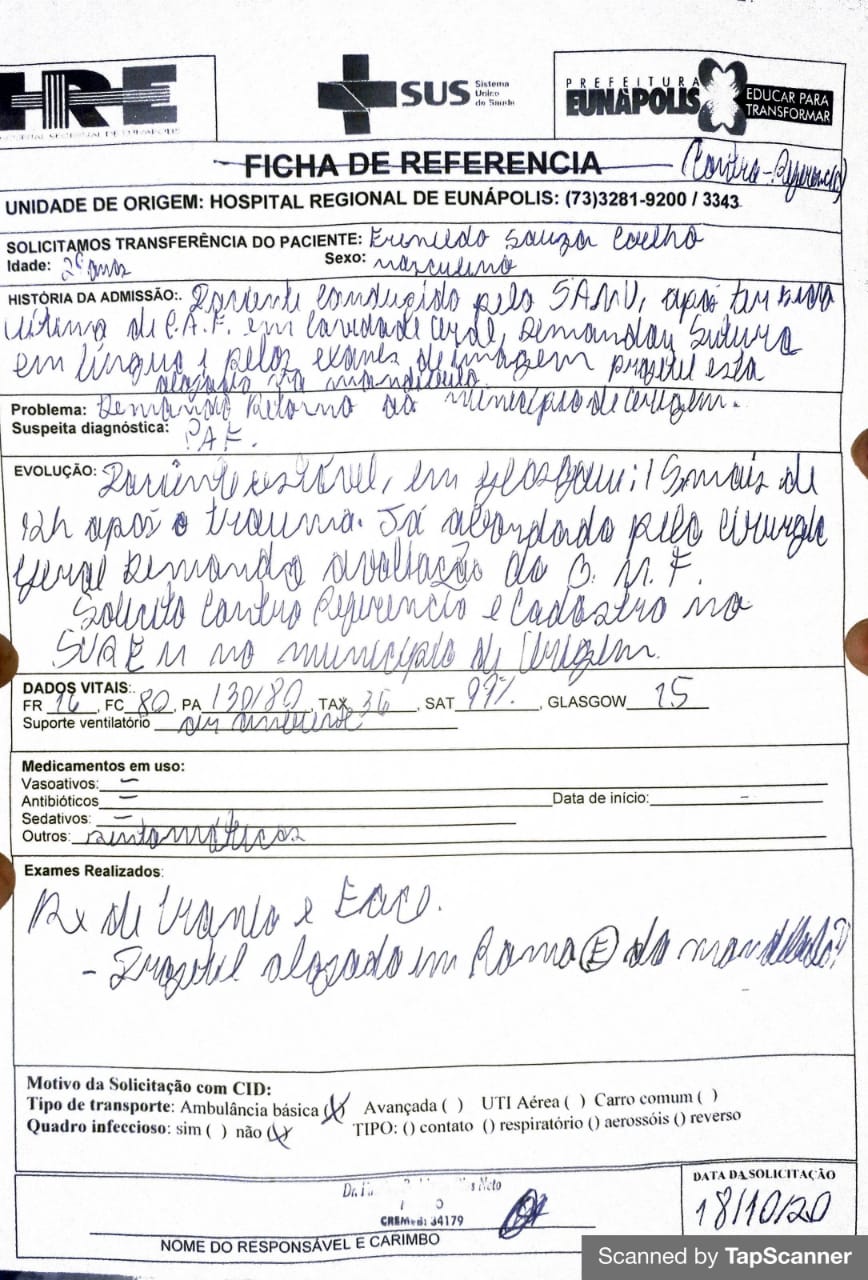 HRE
SUS Sistema Único de Saúde
PREFEITURA EUNÁPOLIS
EDUCAR PARA TRANSFORMAR
FICHA DE REFERENCIA
(Contra-Referencia)
UNIDADE DE ORIGEM: HOSPITAL REGIONAL DE EUNÁPOLIS: (73)3281-9200 / 3343
SOLICITAMOS TRANSFERÊNCIA DO PACIENTE: Souza Coelho
Idade: anos Sexo: masculino
HISTÓRIA DA ADMISSÃO:. Paciente conduzido pelo SAMU, após ter sido
vítima de P.A.F. em cavidade demandou sutura
em língua e pelos exames de imagem projetil esta
alojado na mandibula.
Problema: Demanda retorno ao município de origem.
Suspeita diagnóstica: PAF.
EVOLUÇÃO: Paciente estável, em glasgow: 15 mais de
12h após o trauma. Já abordado pelo cirurgia
geral demanda avaliação da B. M. F.
Solicito Contra Referencia e Cadastro na
no município de origem.
DADOS VITAIS:.
FR 16, FC 80, PA 130/80, TAX 36, SAT 99%, GLASGOW 15
Suporte ventilatório ar ambiente
Medicamentos em uso:
Vasoativos: —
Antibióticos — Data de início: -
Sedativos: —
Outros: sintomáticos
Exames Realizados:
Rx de Cranio e Face.
- Projetil alojado em Ramo (E) da mandibula?
Motivo da Solicitação com CID:
Tipo de transporte: Ambulância básica (X) Avançada ( ) UTI Aérea ( ) Carro comum ( )
Quadro infeccioso: sim ( ) não (X) TIPO: () contato () respiratório () aerossóis () reverso
Neto
34179
NOME DO RESPONSÁVEL E CARIMBO
DATA DA SOLICITAÇÃO
18/10/20
Scanned by TapScanner